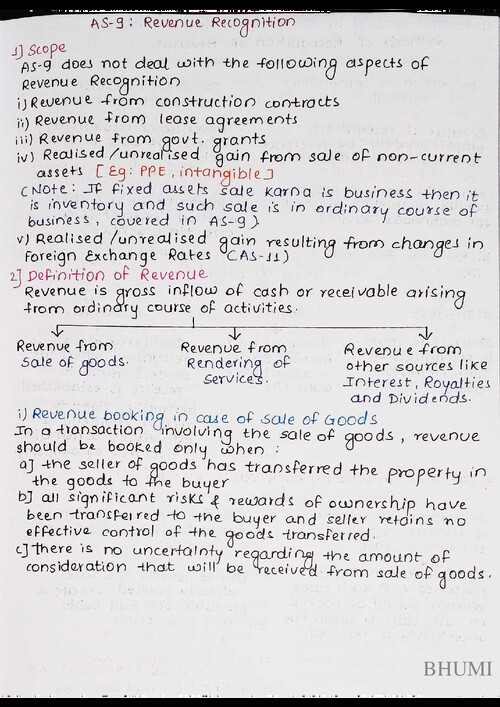 AS-9: Revenue Recognition
1] Scope
AS-9 does not deal with the following aspects of
Revenue Recognition
i) Revenue from construction contracts
ii) Revenue from lease agreements
iii) Revenue from govt. grants
iv) Realised/unrealised gain from sale of non-current
assets [Eg: PPE, intangible]
(Note: If fixed assets sale karna is business then it
is inventory and such sale is in ordinary course of
business, covered in AS-9)
v) Realised/unrealised gain resulting from changes in
Foreign Exchange Rates (AS-11)
2] Definition of Revenue
Revenue is gross inflow of cash or receivable arising
from ordinary course of activities.
Revenue from
Sale of goods.
Revenue from
Rendering of
Services.
Revenue from
other sources like
Interest, Royalties
and Dividends.
i) Revenue booking in case of Sale of Goods
In a transaction involving the sale of goods, revenue
should be booked only when:
a] the seller of goods has transferred the property in
the goods to the buyer
b] all significant risks & rewards of ownership have
been transferred to the buyer and seller retains no
effective control of the goods transferred.
c] there is no uncertainty regarding the amount of
consideration that will be received from sale of goods.
BHUMI